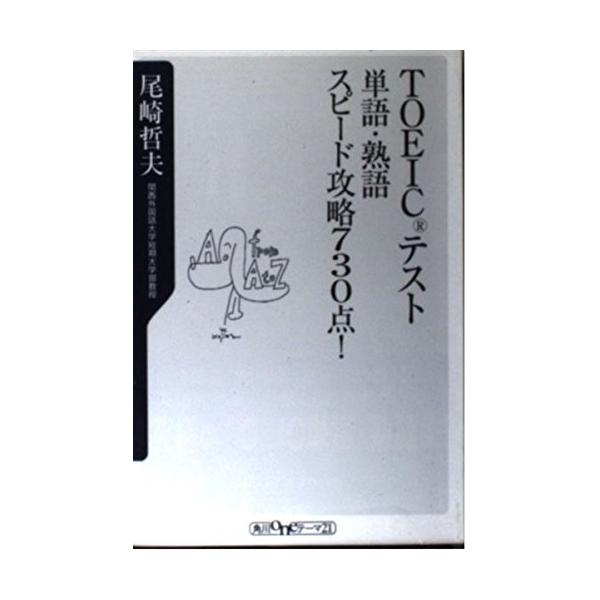 TOEIC®テスト
単語・熟語
スピード攻略730点!
尾崎哲夫
関西外国語大学短期大学部教授
A
from
A to Z
角川oneテーマ21